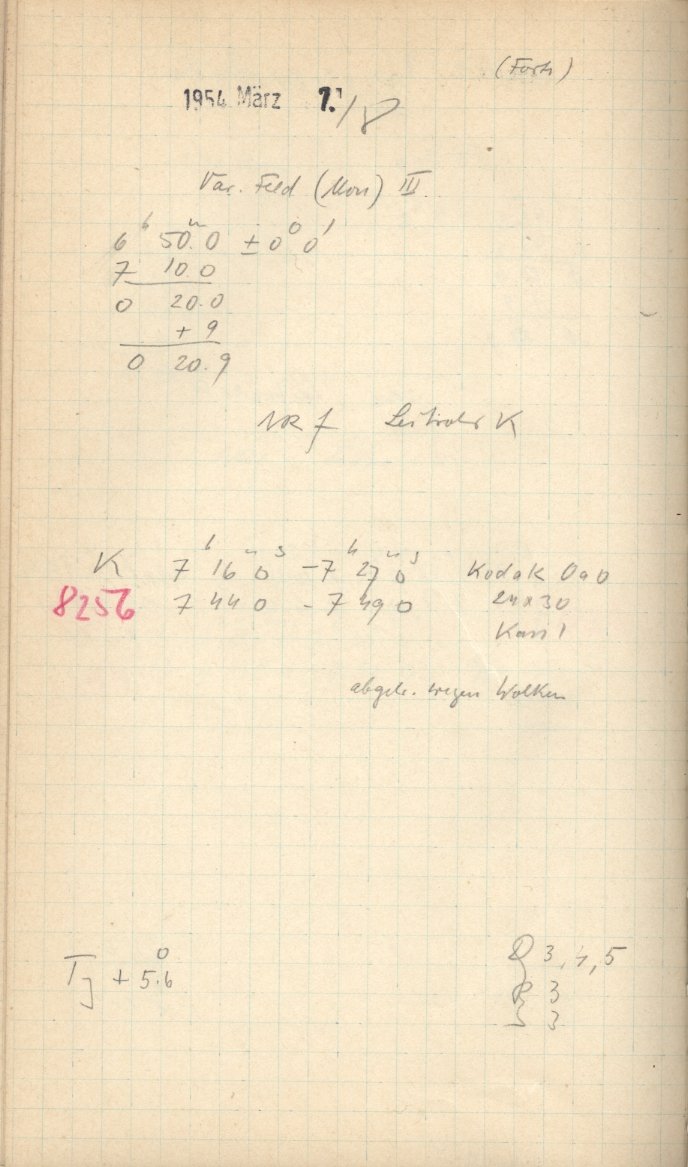 (Forts)
1954 März 7./8
Var. Feld (Mon) III
6 h 50.0 m ± 0° 0'
7 10.0
0 20.0
+ 9
0 20.9
NR f K
K 7 h 16 m 0 s - 7 h 27 m 0 s Kodak OaO
8256 7 44 0 - 7 49 0 24 x 30
Kass I
abgebr. wegen Wolken
T + 5.6° 3, 4, 5
3
3